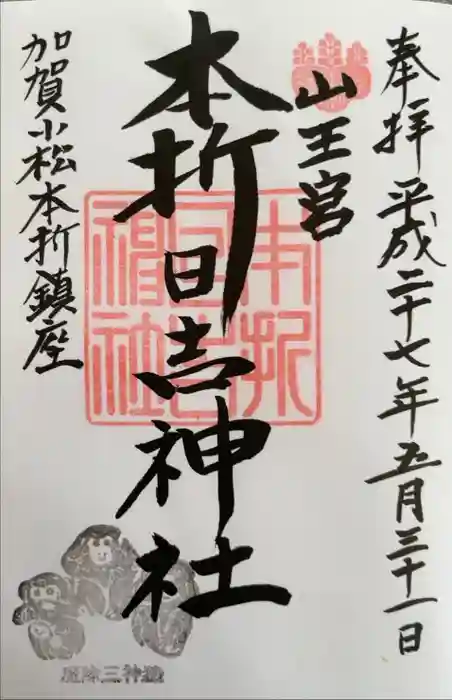 奉拝 平成二十七年五月三十一日
山王宮
本折日吉神社
加賀小松本折鎮座
本折日吉神社